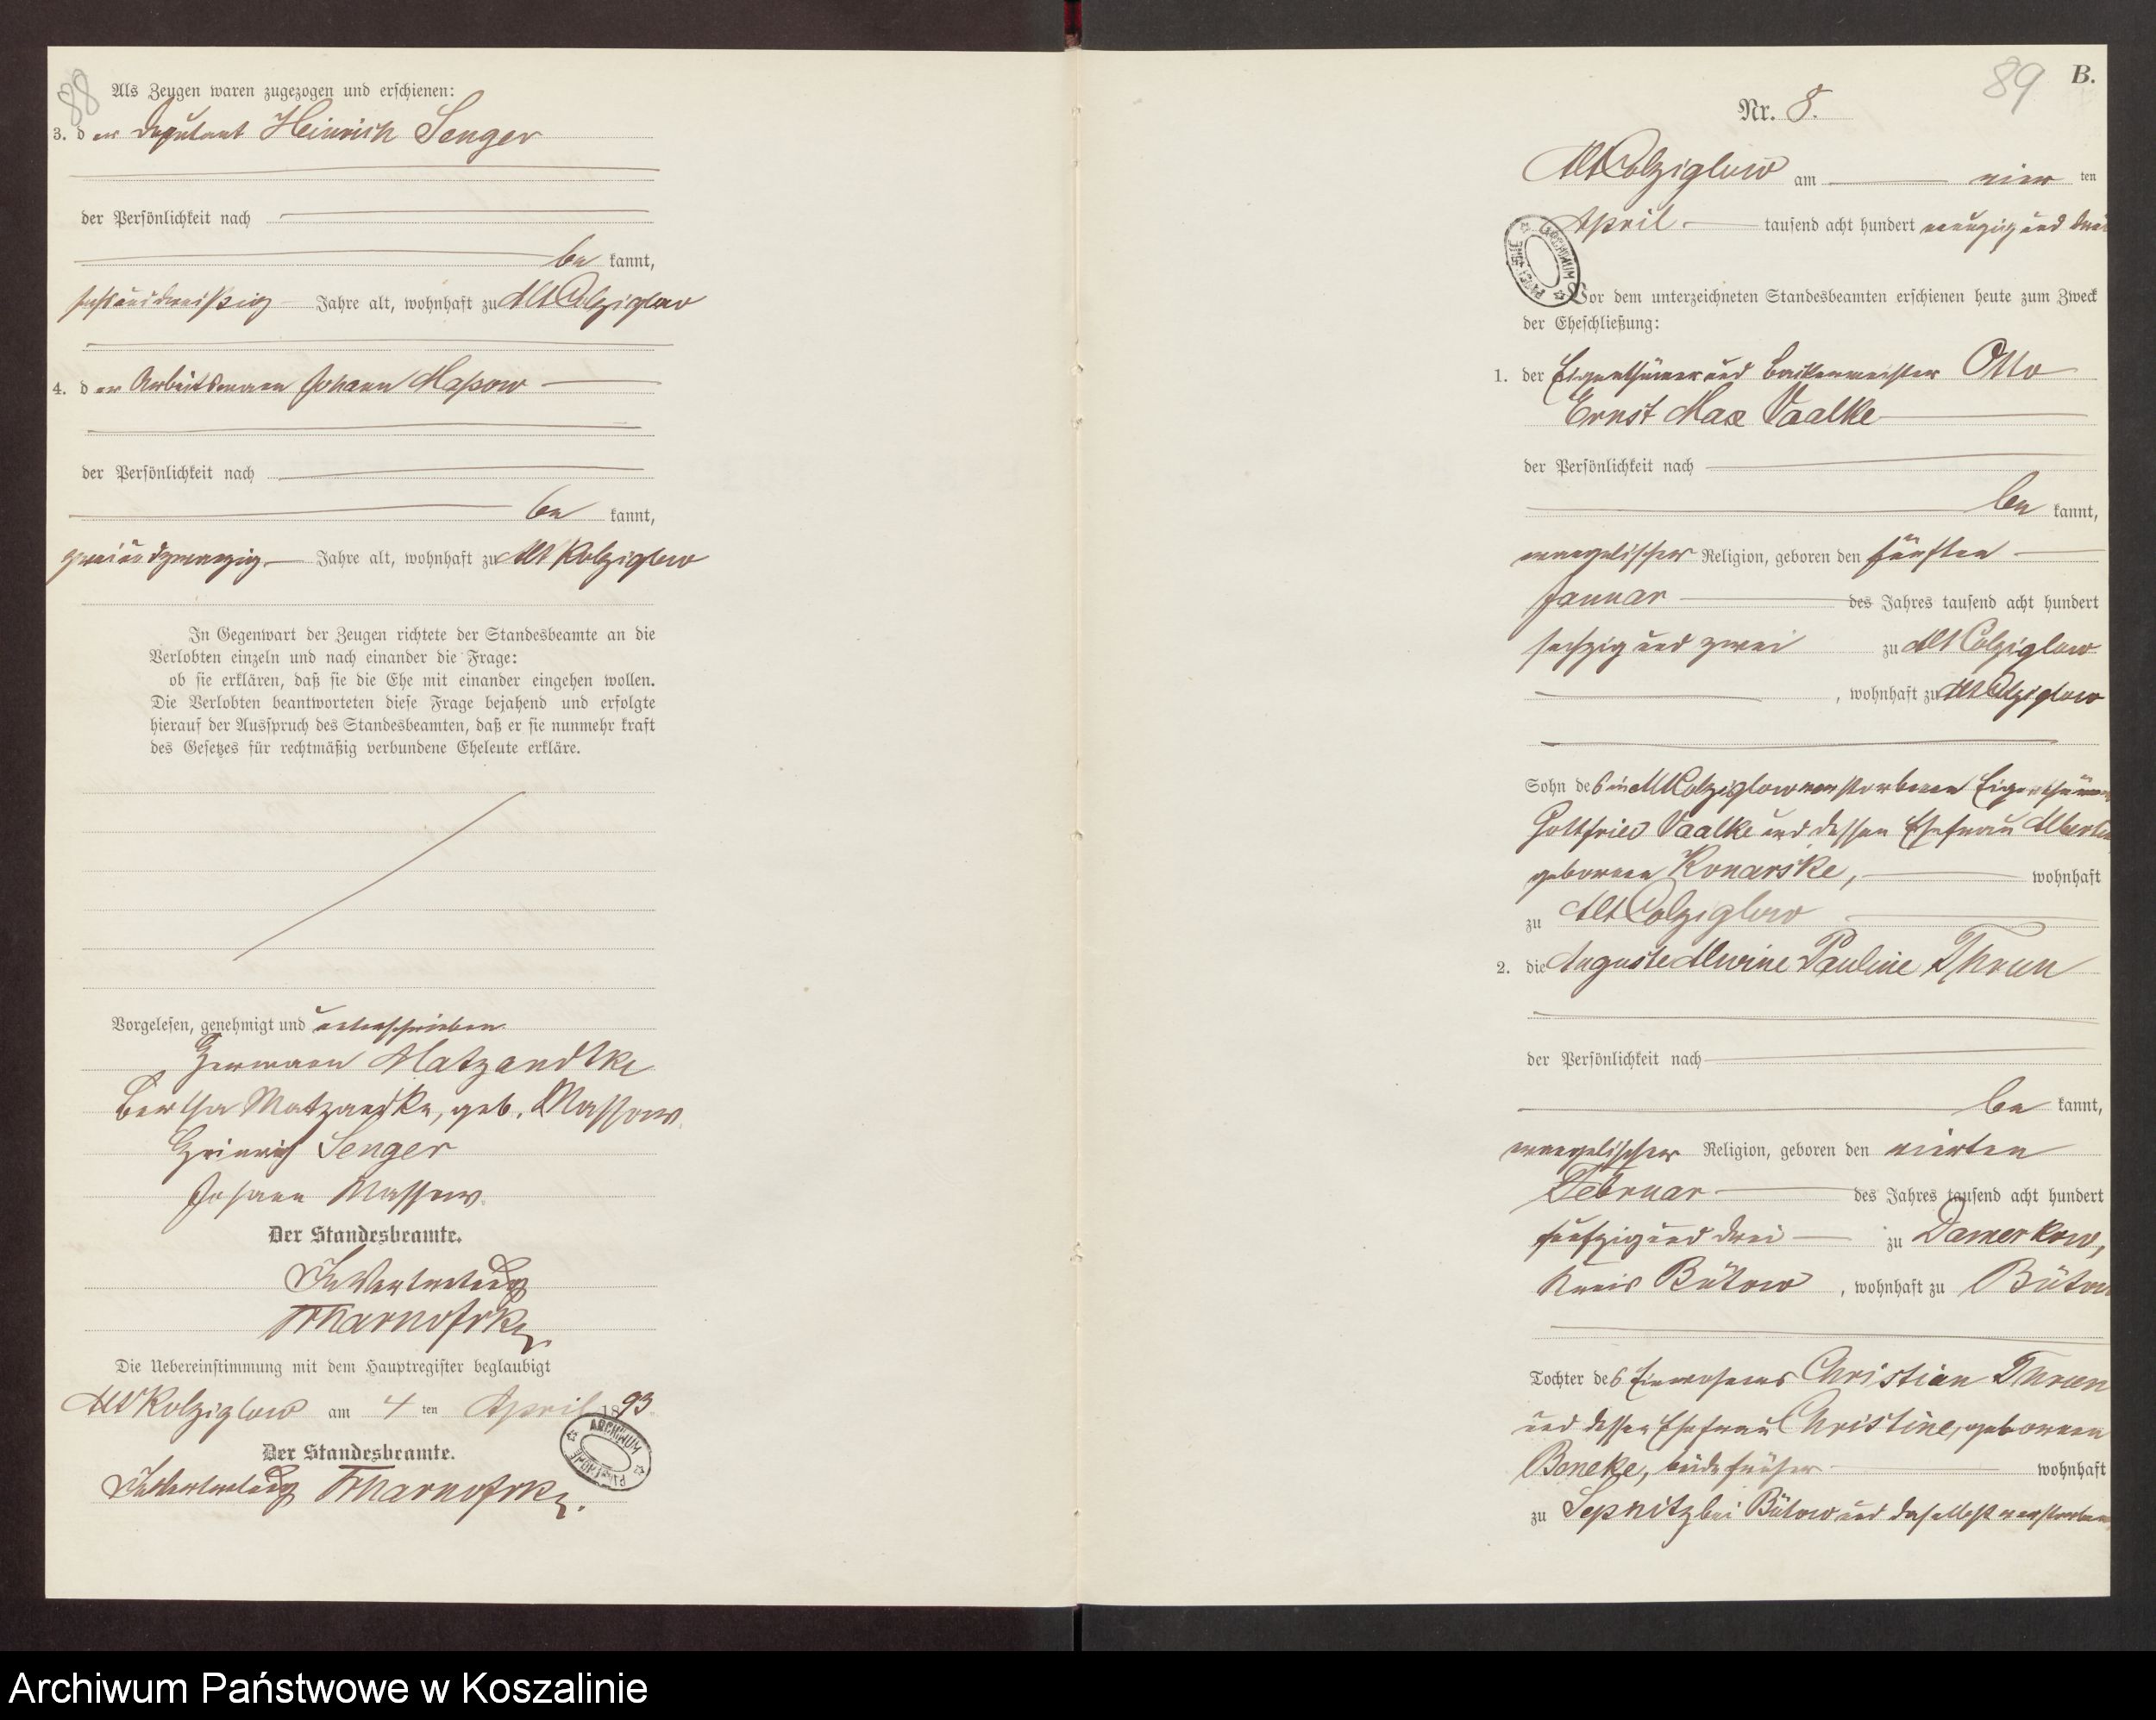 88
Als Zeugen waren zugezogen und erschienen:
3. der Deputant Heinrich Senger
der Persönlichkeit nach
be kannt,
sechsunddreißig Jahre alt, wohnhaft zu Alt Colziglow
4. der Arbeitsmann Johann Maßow
der Persönlichkeit nach
be kannt,
zweiundzwanzig Jahre alt, wohnhaft zu Alt Kolziglow
In Gegenwart der Zeugen richtete der Standesbeamte an die
Verlobten einzeln und nach einander die Frage:
ob sie erklären, daß sie die Ehe mit einander eingehen wollen.
Die Verlobten beantworteten diese Frage bejahend und erfolgte
hierauf der Ausspruch des Standesbeamten, daß er sie nunmehr kraft
des Gesetzes für rechtmäßig verbundene Eheleute erkläre.
Vorgelesen, genehmigt und unterschrieben
Hermann Matzandtke
Bertha Matzandke, geb. Massow.
Heinrich Senger
Johann Massow.
Der Standesbeamte.
In Vertretung
Die Uebereinstimmung mit dem Hauptregister beglaubigt
Alt Kolziglow am 4 ten April 1893
Der Standesbeamte.
In Vertretung
ARCHIWUM PAŃSTWOWE
89 B.
Nr. 8.
Alt Colziglow am vier ten
April tausend acht hundert neunzig und drei
ARCHIWUM PAŃSTWOWE
Vor dem unterzeichneten Standesbeamten erschienen heute zum Zweck
der Eheschließung:
1. der Eigenthümer und Backenmeister Otto
Ernst Max Vaalke
der Persönlichkeit nach
be kannt,
evangelischer Religion, geboren den fünften
Januar des Jahres tausend acht hundert
sechzig und zwei zu Alt Colziglow
, wohnhaft zu Alt Colziglow
Sohn des in Alt Colziglow verstorbenen Eigenthümers
Gottfried Vaalke und dessen Ehefrau Albertine
geborenen Konarske, wohnhaft
zu Alt Colziglow
2. die Auguste Alwine Pauline Thrun
der Persönlichkeit nach
be kannt,
evangelischer Religion, geboren den vierten
Februar des Jahres tausend acht hundert
fünfzig und drei zu Damerkow,
Kreis Bütow, wohnhaft zu Bütow
Tochter des Einwohners Christian Thrun
und dessen Ehefrau Christine, geborenen
Boneke, beide früher wohnhaft
zu Sepnitz bei Bütow und daselbst verstorben
Archiwum Państwowe w Koszalinie